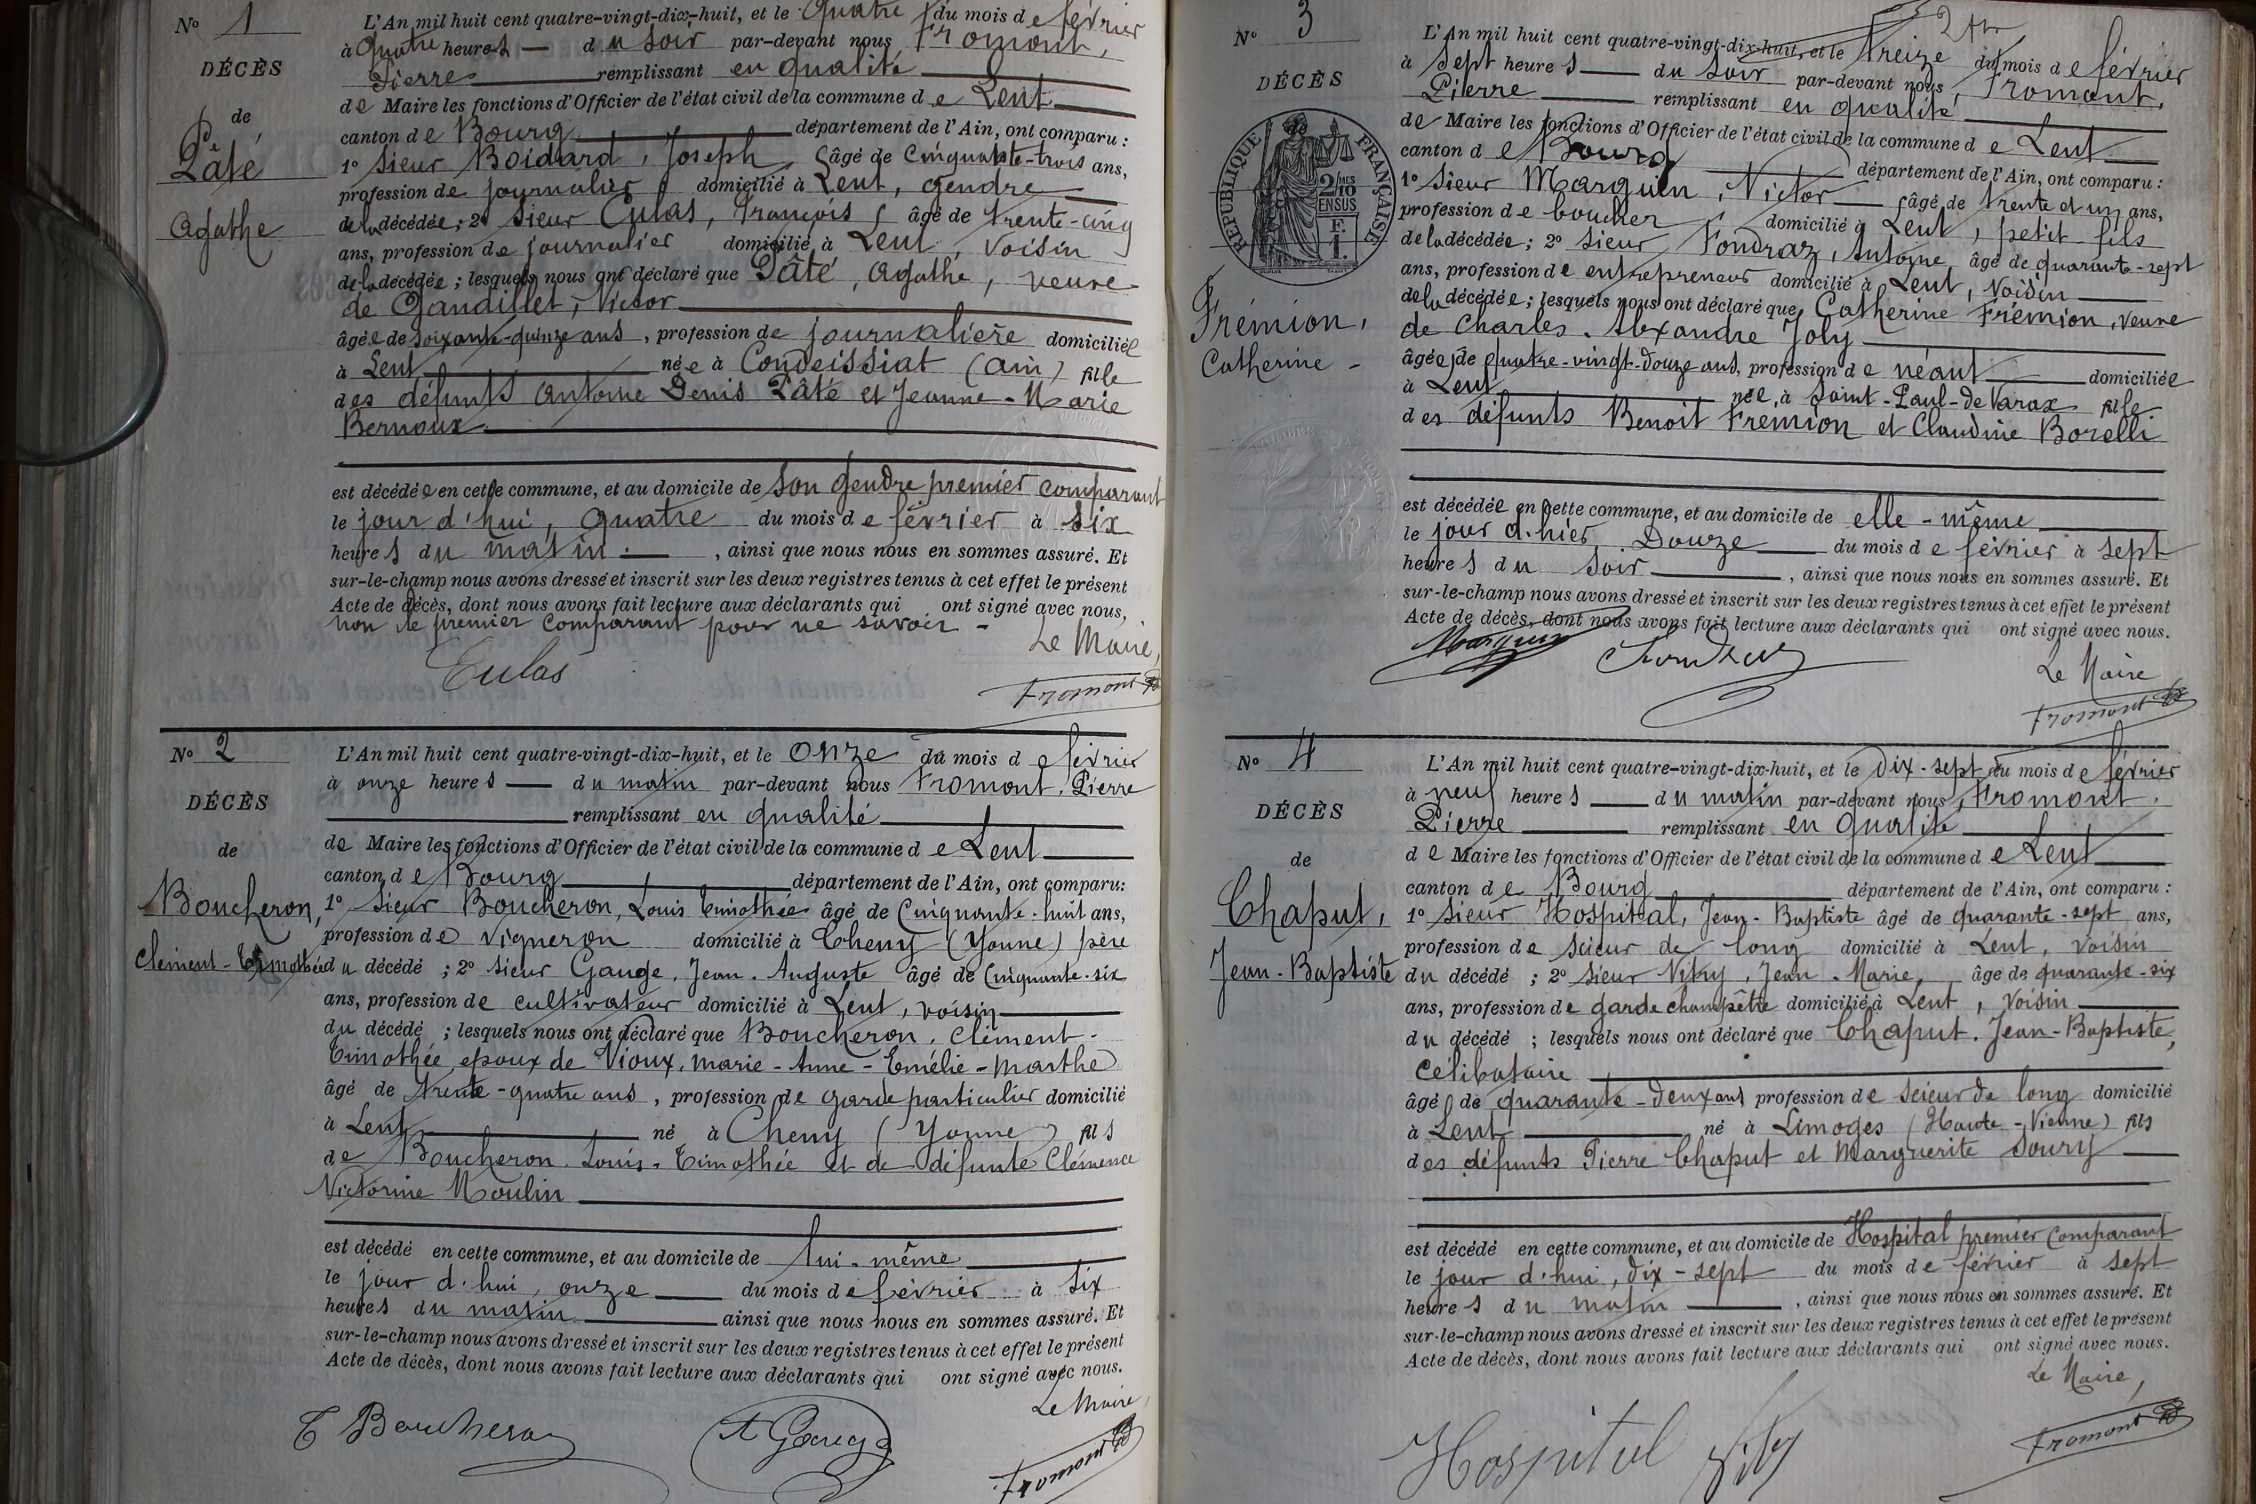 N° 1
DÉCÈS
de
Pâté
Agathe
L'An mil huit cent quatre-vingt-dix-huit, et le Quatre du mois de février
à Quatre heures du soir par-devant nous Fromont,
Pierre remplissant en qualité
de Maire les fonctions d'Officier de l'état civil de la commune de Lent
canton de Bourg département de l'Ain, ont comparu :
1° Sieur Boidard, Joseph, âgé de Cinquante-trois ans,
profession de journalier domicilié à Lent, gendre
de la décédée ; 2° Sieur Culas, François, âgé de trente-cinq
ans, profession de journalier domicilié à Lent, voisin
de la décédée ; lesquels nous ont déclaré que Pâté, Agathe, veuve
de Gandillet, Victor
âgée de soixante-quinze ans, profession de journalière domiciliée
à Lent née à Condeissiat (Ain) fille
des défunts Antoine Denis Pâté et Jeanne-Marie
Bernoux
est décédée en cette commune, et au domicile de son gendre premier comparant
le jour d'hui, quatre du mois de février à six
heures du matin, ainsi que nous nous en sommes assuré. Et
sur-le-champ nous avons dressé et inscrit sur les deux registres tenus à cet effet le présent
Acte de décès, dont nous avons fait lecture aux déclarants qui ont signé avec nous,
non le premier comparant pour ne savoir -
Le Maire,
Culas
Fromont
N° 2
DÉCÈS
de
Boucheron,
Clément-Timothée
L'An mil huit cent quatre-vingt-dix-huit, et le onze du mois de février
à onze heures du matin par-devant nous Fromont, Pierre
remplissant en qualité
de Maire les fonctions d'Officier de l'état civil de la commune de Lent
canton de Bourg département de l'Ain, ont comparu :
1° Sieur Boucheron, Louis Timothée âgé de Cinquante-huit ans,
profession de vigneron domicilié à Cheny (Yonne) père
du décédé ; 2° Sieur Gauge, Jean-Auguste âgé de Cinquante-six
ans, profession de cultivateur domicilié à Lent, voisin
du décédé ; lesquels nous ont déclaré que Boucheron, Clément-
Timothée, époux de Vioux, Marie-Anne-Emélie-Marthe
âgé de trente-quatre ans, profession de garde particulier domicilié
à Lent né à Cheny (Yonne) fils
de Boucheron Louis-Timothée et de défunte Clémence
Victorine Moulin
est décédé en cette commune, et au domicile de lui-même
le jour d'hui, onze du mois de février à six
heures du matin ainsi que nous nous en sommes assuré. Et
sur-le-champ nous avons dressé et inscrit sur les deux registres tenus à cet effet le présent
Acte de décès, dont nous avons fait lecture aux déclarants qui ont signé avec nous.
Le Maire,
T Boucheron
A Gauge
Fromont
N° 3
DÉCÈS
de
RÉPUBLIQUE FRANÇAISE
2/10 MES
EN SUS
F.
1.
Frémion,
Catherine -
L'An mil huit cent quatre-vingt-dix-huit, et le treize du mois de février
à sept heures du soir par-devant nous, Fromont,
Pierre remplissant en qualité
de Maire les fonctions d'Officier de l'état civil de la commune de Lent
canton de Bourg département de l'Ain, ont comparu :
1° Sieur Marguin, Victor âgé de trente et un ans,
profession de boucher domicilié à Lent, petit-fils
de la décédée ; 2° Sieur Fondraz, Antoine âgé de quarante-sept
ans, profession de entrepreneur domicilié à Lent, voisin
de la décédée ; lesquels nous ont déclaré que Catherine Frémion, veuve
de Charles-Alexandre Joly
âgée de quatre-vingt-douze ans, profession de néant domiciliée
à Lent née à Saint-Paul-de-Varax fille
des défunts Benoit Frémion et Claudine Borelli
est décédée en cette commune, et au domicile de elle-même
le jour d'hier Douze du mois de février à sept
heures du soir, ainsi que nous nous en sommes assuré. Et
sur-le-champ nous avons dressé et inscrit sur les deux registres tenus à cet effet le présent
Acte de décès, dont nous avons fait lecture aux déclarants qui ont signé avec nous.
Marguin
Le Maire
Fromont
N° 4
DÉCÈS
de
Chaput,
Jean-Baptiste
L'An mil huit cent quatre-vingt-dix-huit, et le dix-sept du mois de février
à neuf heures du matin par-devant nous, Fromont,
Pierre remplissant en qualité
de Maire les fonctions d'Officier de l'état civil de la commune de Lent
canton de Bourg département de l'Ain, ont comparu :
1° Sieur Hospital, Jean-Baptiste âgé de quarante-sept ans,
profession de scieur de long domicilié à Lent, voisin
du décédé ; 2° Sieur Jean-Marie, âgé de quarante-six
ans, profession de garde champêtre domicilié à Lent, voisin
du décédé ; lesquels nous ont déclaré que Chaput, Jean-Baptiste,
célibataire
âgé de quarante-deux ans profession de scieur de long domicilié
à Lent né à Limoges (Haute-Vienne) fils
des défunts Pierre Chaput et Marguerite Soury
est décédé en cette commune, et au domicile de Hospital premier comparant
le jour d'hui, dix-sept du mois de février à sept
heures du matin, ainsi que nous nous en sommes assuré. Et
sur-le-champ nous avons dressé et inscrit sur les deux registres tenus à cet effet le présent
Acte de décès, dont nous avons fait lecture aux déclarants qui ont signé avec nous.
Le Maire,
Hospital
Fromont